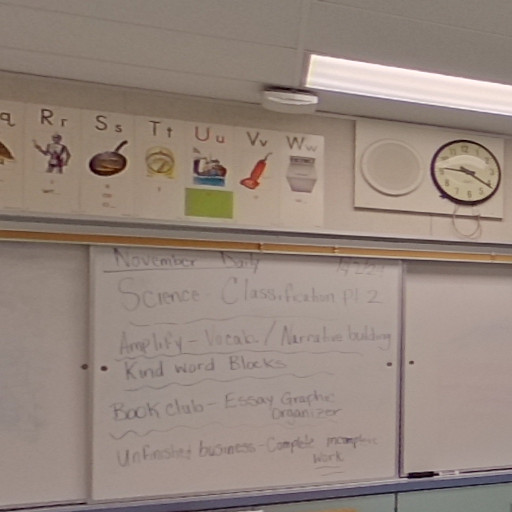 q Rr Ss Tt Uu Vv Ww
November Daily
Science - Classification pt 2
Amplify - Vocab. / Narrative building
Kind word Blocks
Book club - Essay Graphic
Organizer
Unfinished business - Complete incomplete
work